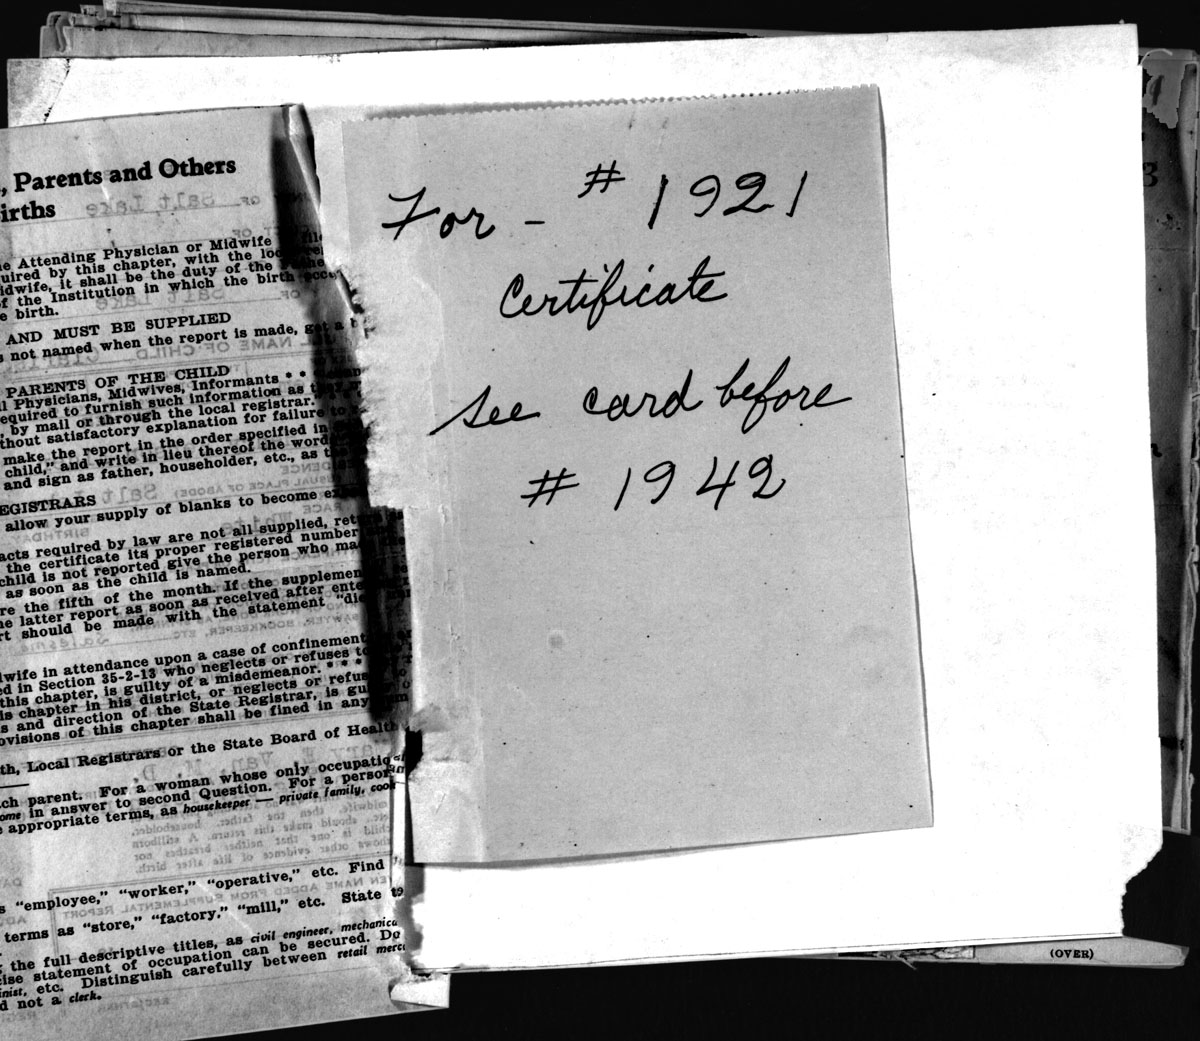 , Parents and Others
irths
e Attending Physician or Midwife
uired by this chapter, with the
idwife, it shall be the duty of the
of the Institution in which the birth
e birth.
AND MUST BE SUPPLIED
s not named when the report is made,
PARENTS OF THE CHILD
l Physicians, Midwives, Informants * *
equired to furnish such information as
, by mail or through the local registrar.
thout satisfactory explanation for failure to
make the report in the order specified in
child," and write in lieu thereof the word
and sign as father, householder, etc., as
EGISTRARS
allow your supply of blanks to become
acts required by law are not all supplied,
the certificate its proper registered number
child is not reported give the person who
as soon as the child is named.
re the fifth of the month. If the supplemen
he latter report as soon as received after
rt should be made with the statement
dwife in attendance upon a case of confinement
ed in Section 35-2-13 who neglects or refuses
this chapter, is guilty of a misdemeanor. * * *
is chapter in his district, or neglects or
s and direction of the State Registrar, is
ovisions of this chapter shall be fined in any
th, Local Registrars or the State Board of Health
ch parent. For a woman whose only occupatio
ome in answer to second Question. For a person
e appropriate terms, as housekeeper — private family, cook
s "employee," "worker," "operative," etc. Find
terms as "store," "factory," "mill," etc. State
g the full descriptive titles, as civil engineer, mechanica
cise statement of occupation can be secured. Do
inist, etc. Distinguish carefully between retail merc
d not a clerk.
For - # 1921
Certificate
see card before
# 1942
(OVER)